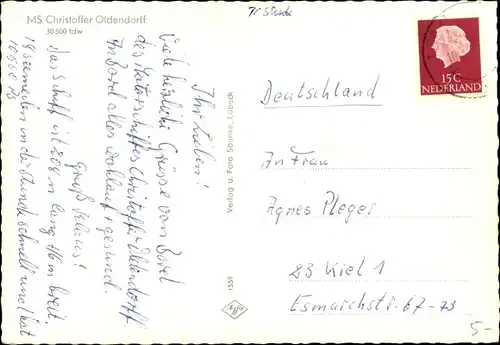 MS Christoffer Oldendorff
30 500 tdw
Ihr Lieben!
Viele herzliche Grüsse von Bord
des Motorschiffes Christoffer Oldendorff.
An Bord alles wohlauf + gesund.
Gruß Klaus!
Das Schiff ist 208 m lang + 16 m breit.
18 seemeilen in der Stunde schnell und hat
Verlag u. Foto Lübeck
1559
15C
NEDERLAND
Deutschland
An Frau
Agnes Pleger
23 Kiel 1
Esmarchstr. 67-73
5-